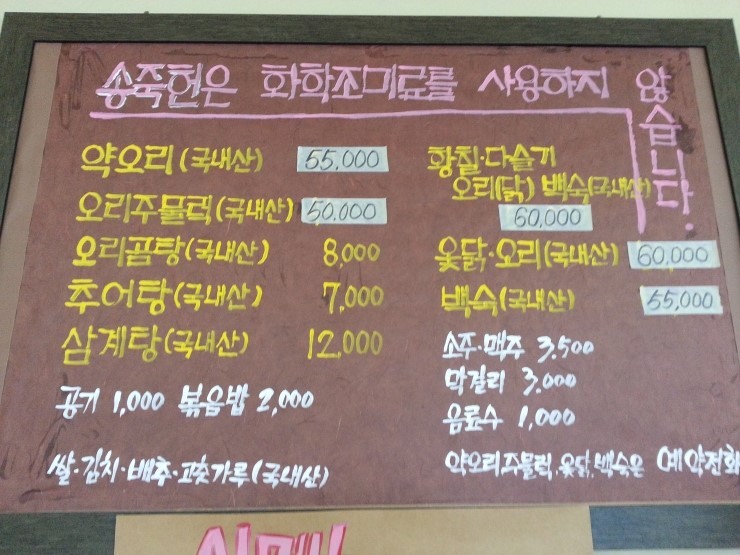 송죽헌은 화학조미료를 사용하지 않습니다.
약오리(국내산) 55,000
오리주물럭(국내산) 50.000
오리곰탕(국내산) 8,000
추어탕(국내산) 7,000
삼계탕(국내산) 12,000
공기 1,000 볶음밥 2,000
쌀·김치·배추·고춧가루(국내산)
황칠·다슬기
오리(닭) 백숙(국내산)
60,000
옻닭·오리(국내산) 60,000
백숙(국내산) 55,000
소주·맥주 3.500
막걸리 3.000
음료수 1,000
약오리주물럭, 옻닭, 백숙은 예약전화